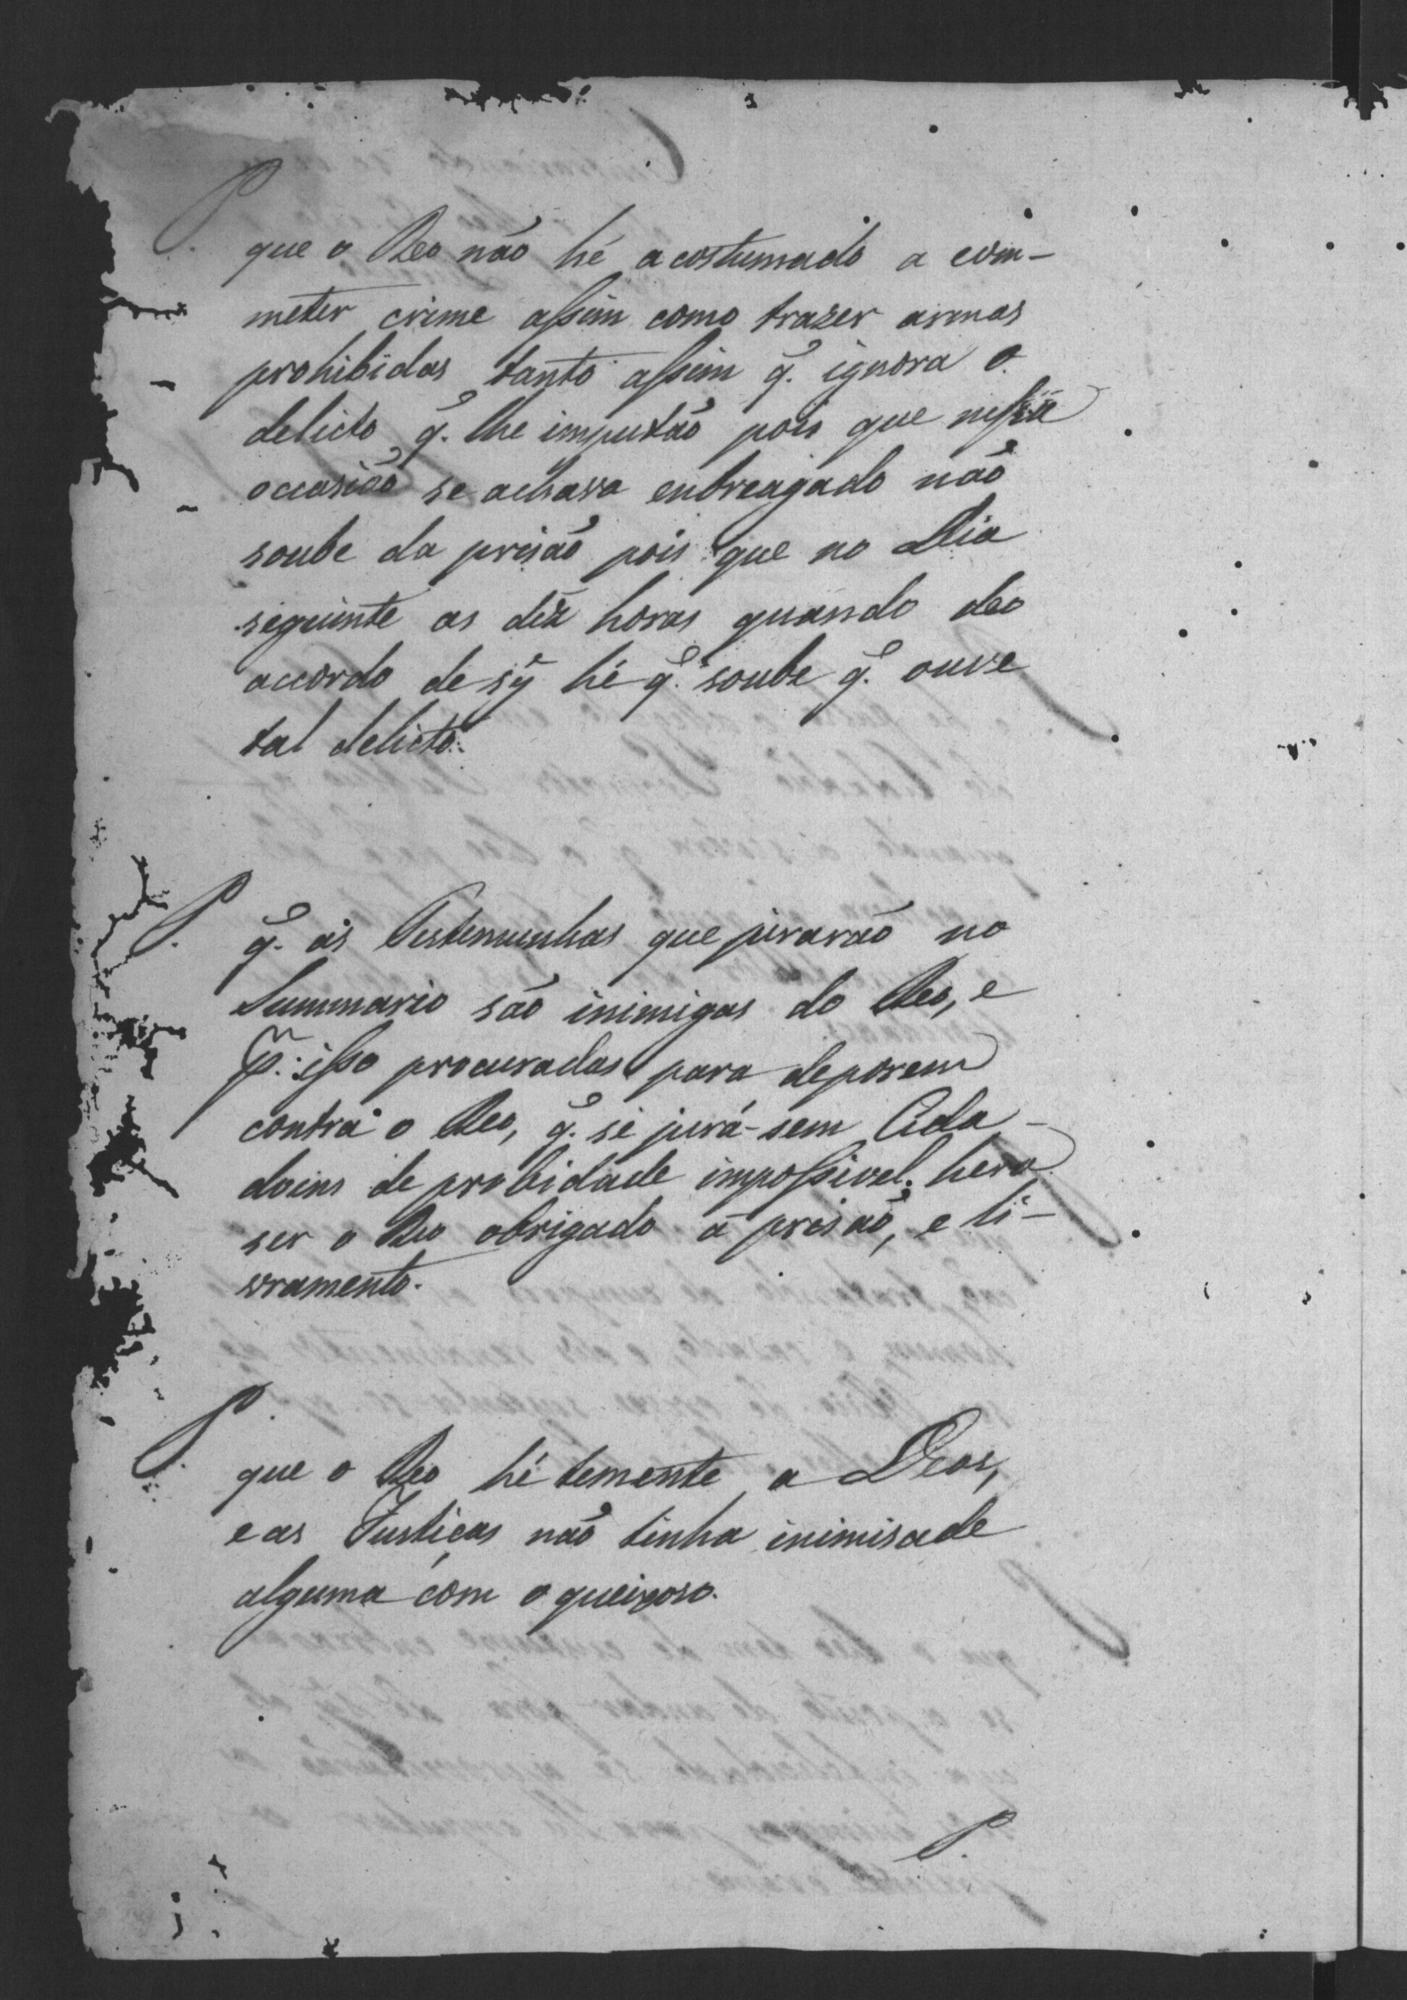 P.
que o Reo não hé acostumado a com-
meter crime assim como trazer armas
prohibidas tanto assim q̃. ignora o
delicto q̃. lhe imputão pois que nessa
occasião se achava enbreagado não
soube da prisão pois que no Dia
seguinte as dez horas quando deo
accordo de sy hé q̃. soube q̃. ouve
tal delicto.
P.
q̃. as Testemunhas que jurarão no
Summario são inimigas do Reo, e
P.r isso procuradas para deporem
contra o Reo, q̃. se jurá-sem Cida-
doens de probidade impossivel hera
ser o Reo obrigado a prisão, e li-
vramento.
P.
que o Reo hé temente a Deos,
e as Justiças não tinha inimisade
alguma com o queixoso.
P.